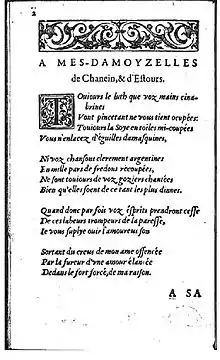 2
A MES-DAMOYZELLES
de Chanein, & d'Estours.
Tousiours le luth que voz mains cina-
brines
Vont pincettant ne vous tient ocupées:
Tousiours la Soye en toiles mi-coupées
Vous n'enlacez d'éguilles damasquines,
Ni voz chansons clerement argentines
En mille pars de fredons récoupées,
Ne sont tousiours de voz goziers chantées
Bien qu'elles soent de ce tant les plus dignes.
Quand donc par fois voz ésprits prendront cesse
De ces labeurs trompeurs de la paresse,
Ie vous suplye ouïr l'amoureus son
Sortant du creus de mon ame offencée
Par la fureur d'vne amour élancée
Dedans le fort forcé, de ma raison.
A SA